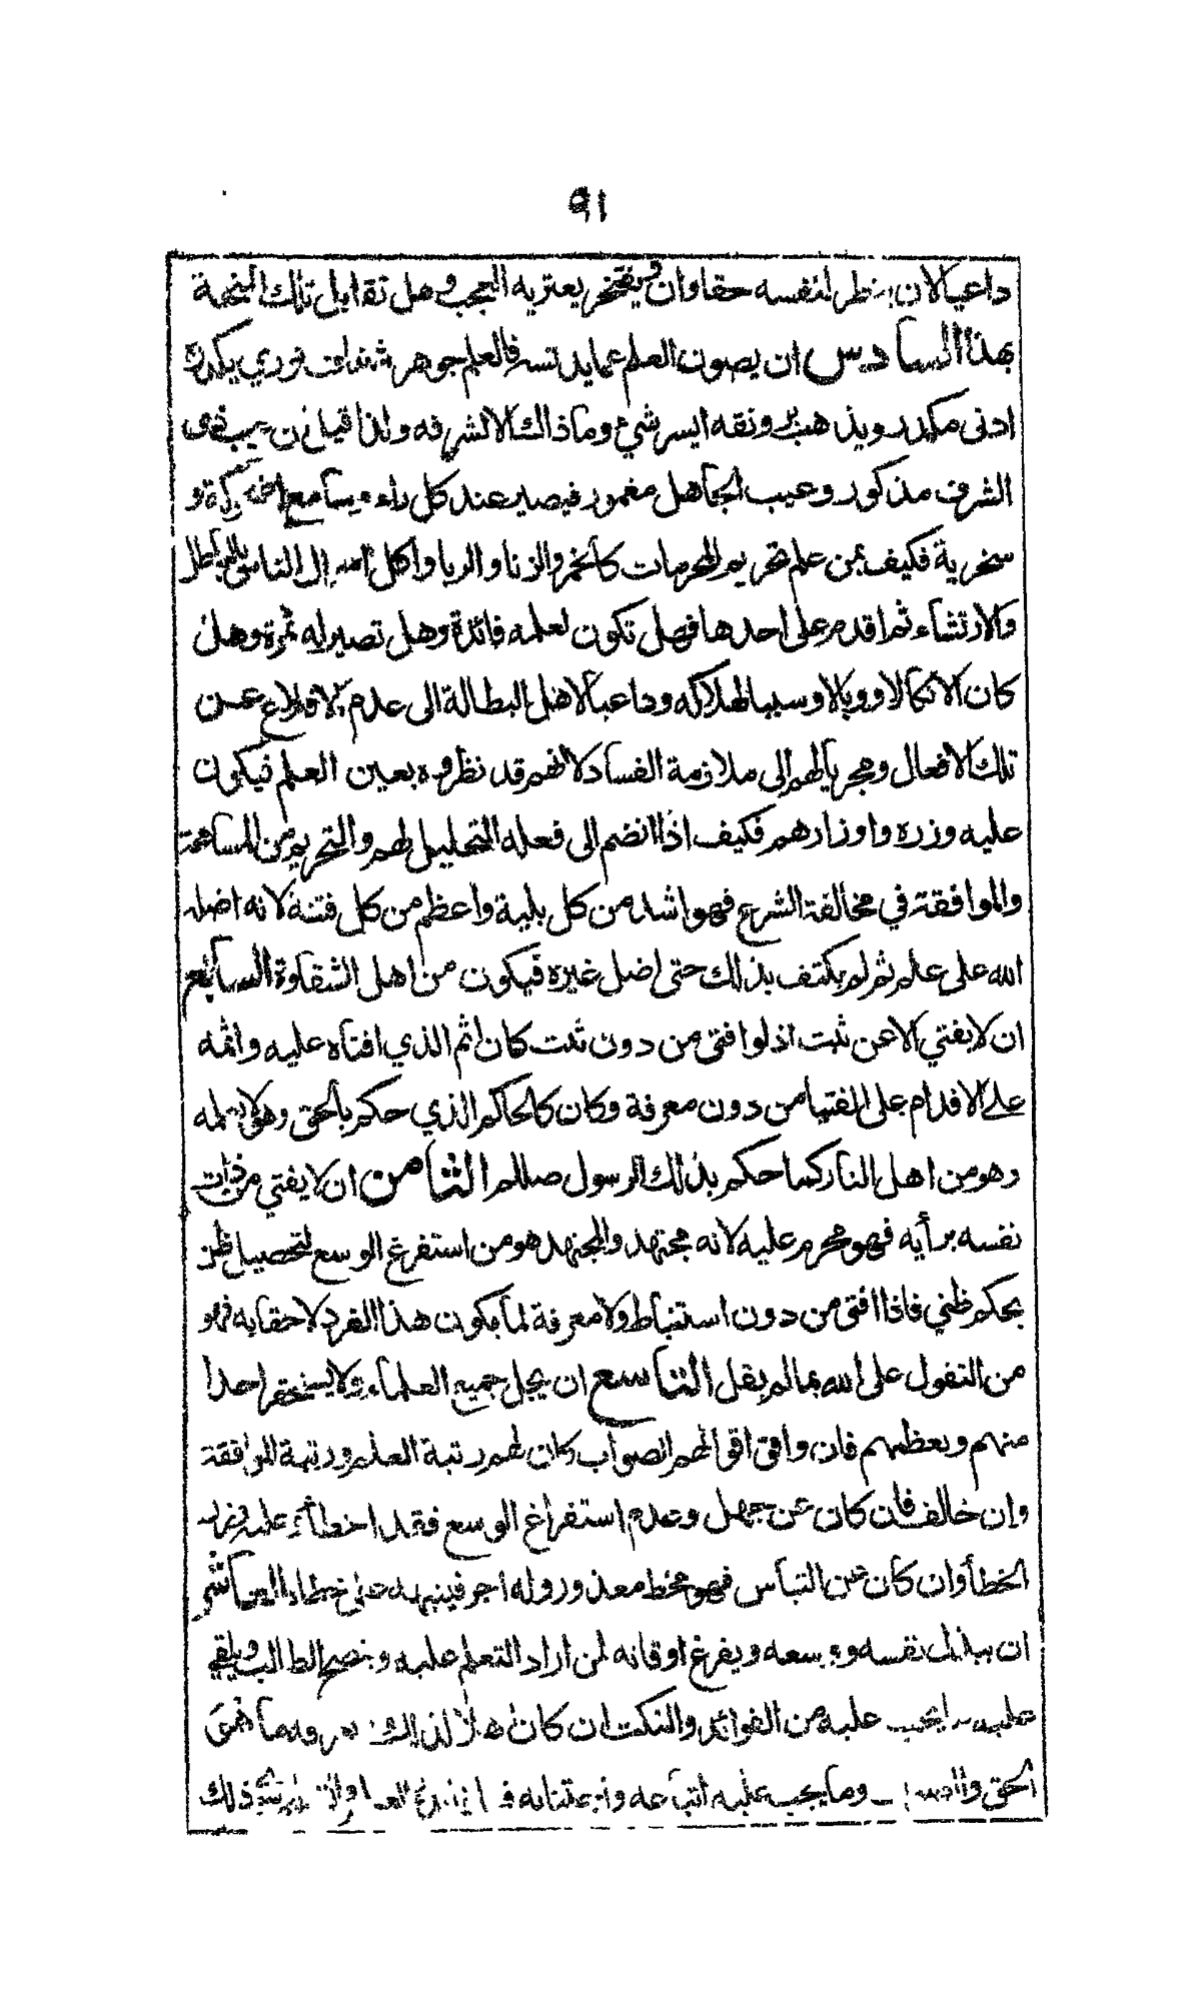 ٩١
داعيا لان ينظر لنفسه حقا وان يفتخر يعتريه العجب وهل تقابل تلك النعمة
بهذا السادس ان يصون العلم عما يدنسه فالعلم جوهر شفاف نوري يكدره
ادنى مكدر ويذهب رونقه ايسر شيء وما ذاك الا لشرفه ولذا قيل
الشرف مذكور وعيب الجاهل مغمور فيصير عند كل راء وسامع
سخرية فكيف بمن علم تحريم المحرمات كالخمر والزنا والربا واكل اموال الناس بالباطل
والارتشاء ثم اقدم على احدها فهل تكون لعلمه فائدة وهل تصير له ثمرة وهل
كان الا نكالا ووبالا وسببا لهلاكه وداعيا لاهل البطالة الى عدم الاقلاع عن
تلك الافعال ومجريا لهم الى ملازمة الفساد لانهم قد نظروه بعين العلم فيكون
عليه وزره واوزارهم فكيف اذا انضم الى فعله التحليل لهم والتحريم من المساهمة
والموافقة في مخالفة الشرع فهو اشد من كل بلية واعظم من كل فتنة لانه اضله
الله على علم ثم لم يكتف بذلك حتى اضل غيره فيكون من اهل الشقاوة السابع
ان لا يفتي الا عن ثبت اذ لو افتى من دون ثبت كان اثم الذي افتاه عليه واثمه
على الاقدام على الفتيا من دون معرفة وكان كالحاكم الذي حكم بالحق وهو لا يعلمه
وهو من اهل النار كما حكم بذلك الرسول صللم الثامن ان لا يفتي من ذات
نفسه برأيه فهو محرم عليه لانه مجتهد والمجتهد هو من استفرغ الوسع لتحصيل ظن
بحكم ظني فاذا افتى من دون استنباط ولا معرفة لما يكون هذا الفرد لاحقا به فهو
من التقول على الله بما لم يقل التاسع ان يجل جميع العلماء ولا يستحقر احدا
منهم ويعظمهم فان وافق اقوالهم الصواب كان لهم رتبة العلم ورتبة الموافقة
وان خالف فان كان عن جهل وعدم استفراغ الوسع فقد اخطأ
الخطأ وان كان عن التباس فهو مخط معذور وله اجر فينبهه على خطاه العاشر
ان يبذل نفسه ووسعه ويفرغ اوقاته لمن اراد التعلم عليه وينصح الطالب ويلقي
عليه ما يجب عليه من الفوائد والنكت ان كان اهلا لذلك
الحق وما يجب عليه اتباعه واجتنابه ذلك